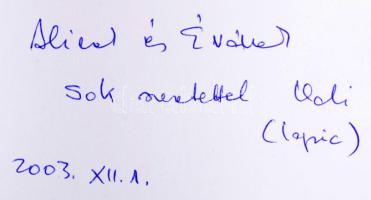 Alicnak és Évának
sok szeretettel Vali
(Lapic)
2003. XII. 1.